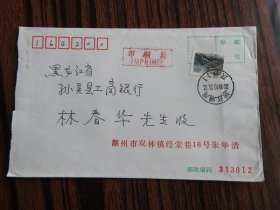 164200
印刷品
IMPRIMÉ
贴邮
票处
黑龙江省
孙吴县工商银行
林春华先生收
湖州市双林镇经堂巷16号朱华清
邮政编码 313012